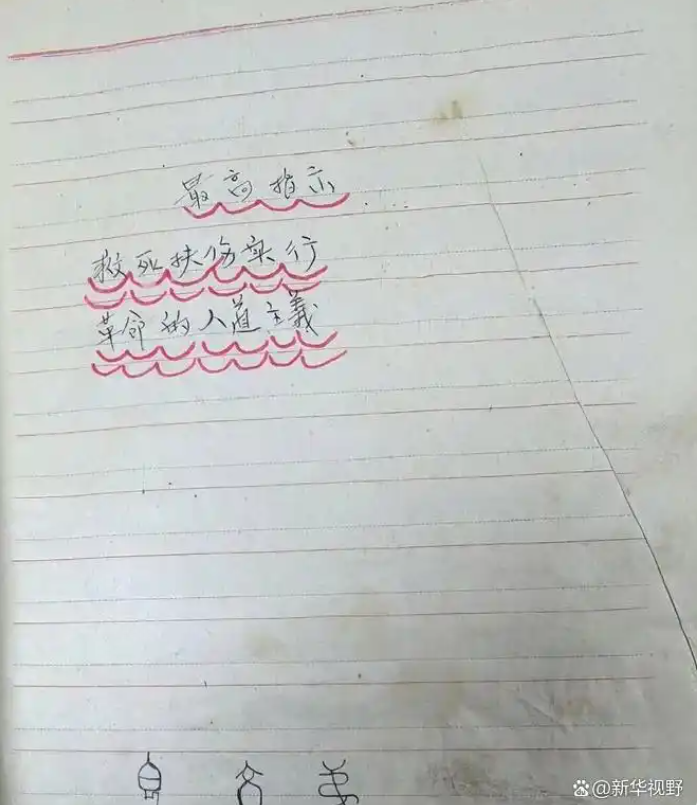 最高指示
救死扶伤实行
革命的人道主義
@新华视野